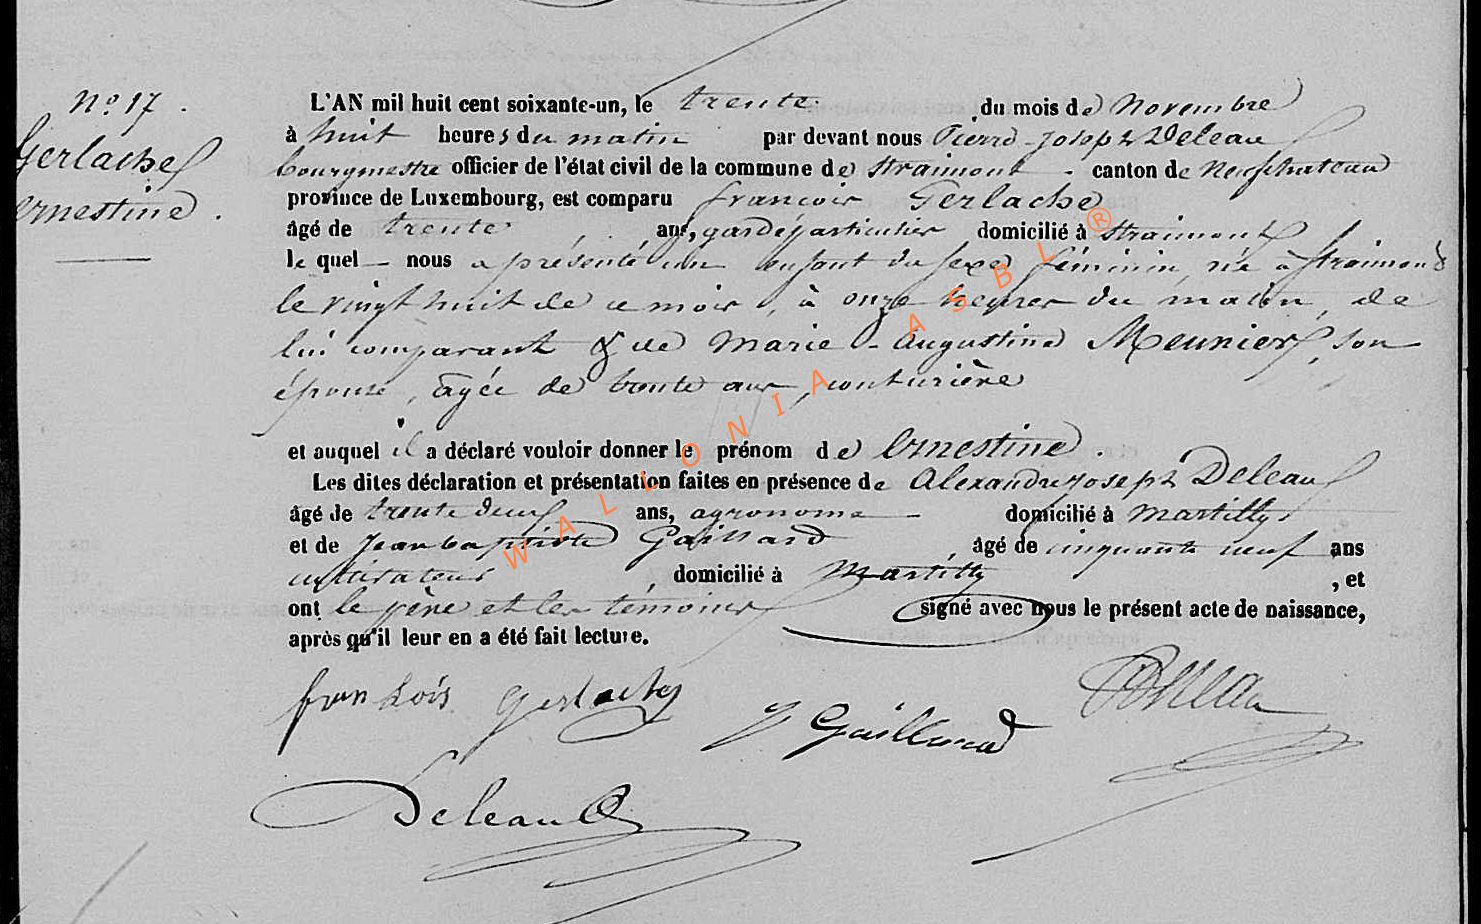 No 17.
Gerlache
Ernestine.
L'AN mil huit cent soixante-un, le trente du mois de Novembre
à huit heures du matin par devant nous Pierre-Joseph Deleau
bourgmestre officier de l'état civil de la commune de Straimont canton de Neufchateau
province de Luxembourg, est comparu françois Gerlache
âgé de trente ans, garde particulier domicilié à Straimont
lequel nous a présenté un enfant du sexe féminin, né à Straimont
le vingt huit de ce mois, à onze heures du matin, de
lui comparant & de Marie-Augustine Meunier, son
épouse, âgée de trente ans, couturière
et auquel il a déclaré vouloir donner le prénom de Ernestine.
Les dites déclaration et présentation faites en présence de Alexandre Joseph Deleau
âgé de trente deux ans, agronome domicilié à Martilly
et de Jean baptiste Gaillard, âgé de cinquante neuf ans
cultivateur, domicilié à Martilly, et
ont le père et les témoins signé avec nous le présent acte de naissance,
après qu'il leur en a été fait lecture.
françois gerlache
J Gaillard
Deleau
WALLONIA ASBL ®